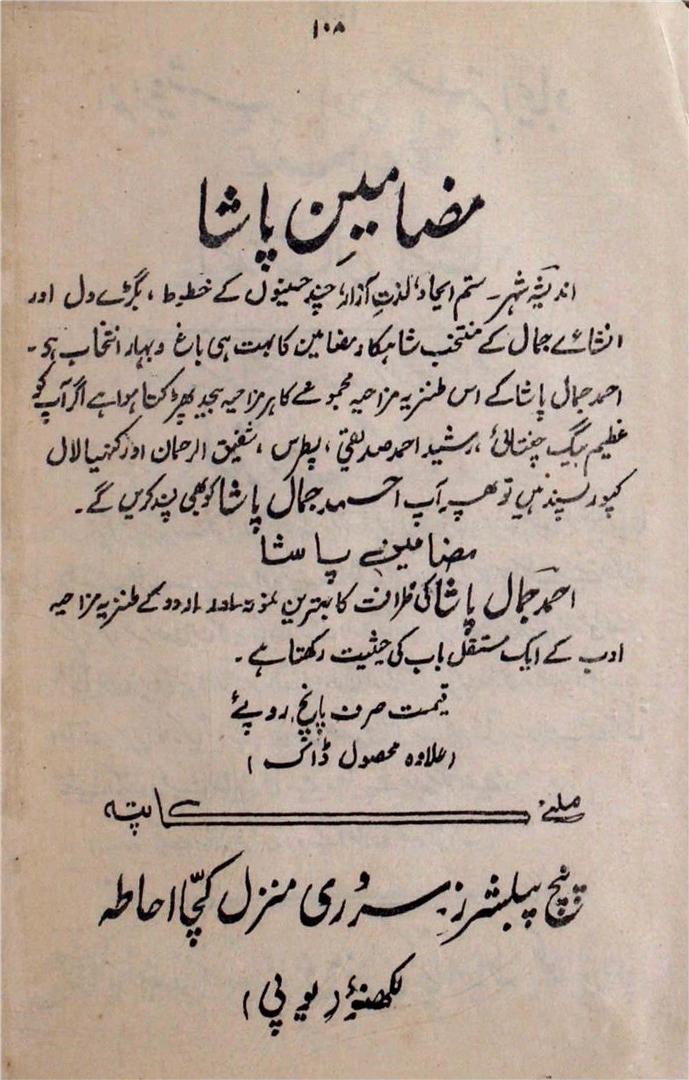 ۱۰۸
مضامینِ پاشا
اندیشۂ شہر۔ ستم ایجاد، لذتِ آزار، چند حسینوں کے خطوط، بگڑے دل اور
انشائے جمال کے منتخب شاہکار مضامین کا بہت ہی باغ و بہار انتخاب ہو۔
احمد جمال پاشا کے اس طنزیہ مزاحیہ مجموعے کا ہر مزاحیہ بیحد پھڑکتا ہوا ہے اگر آپ کو
عظیم بیگ چغتائی، رشید احمد صدیقی، پطرس، شفیق الرحمان اور کنہیا لال
کپور پسند ہیں تو پھر آپ احمد جمال پاشا کو بھی پسند کریں گے۔
مضامینِ پاشا
احمد جمال پاشا کی ظرافت کا بہترین نمونہ اور اردو کے طنزیہ مزاحیہ
ادب کے ایک مستقل باب کی حیثیت رکھتا ہے۔
قیمت صرف پانچ روپئے
(علاوہ محصول ڈاک)
ملنے کا پتہ
پنچ پبلشرز۔ سروری منزل کچا احاطہ
لکھنؤ (یو پی)